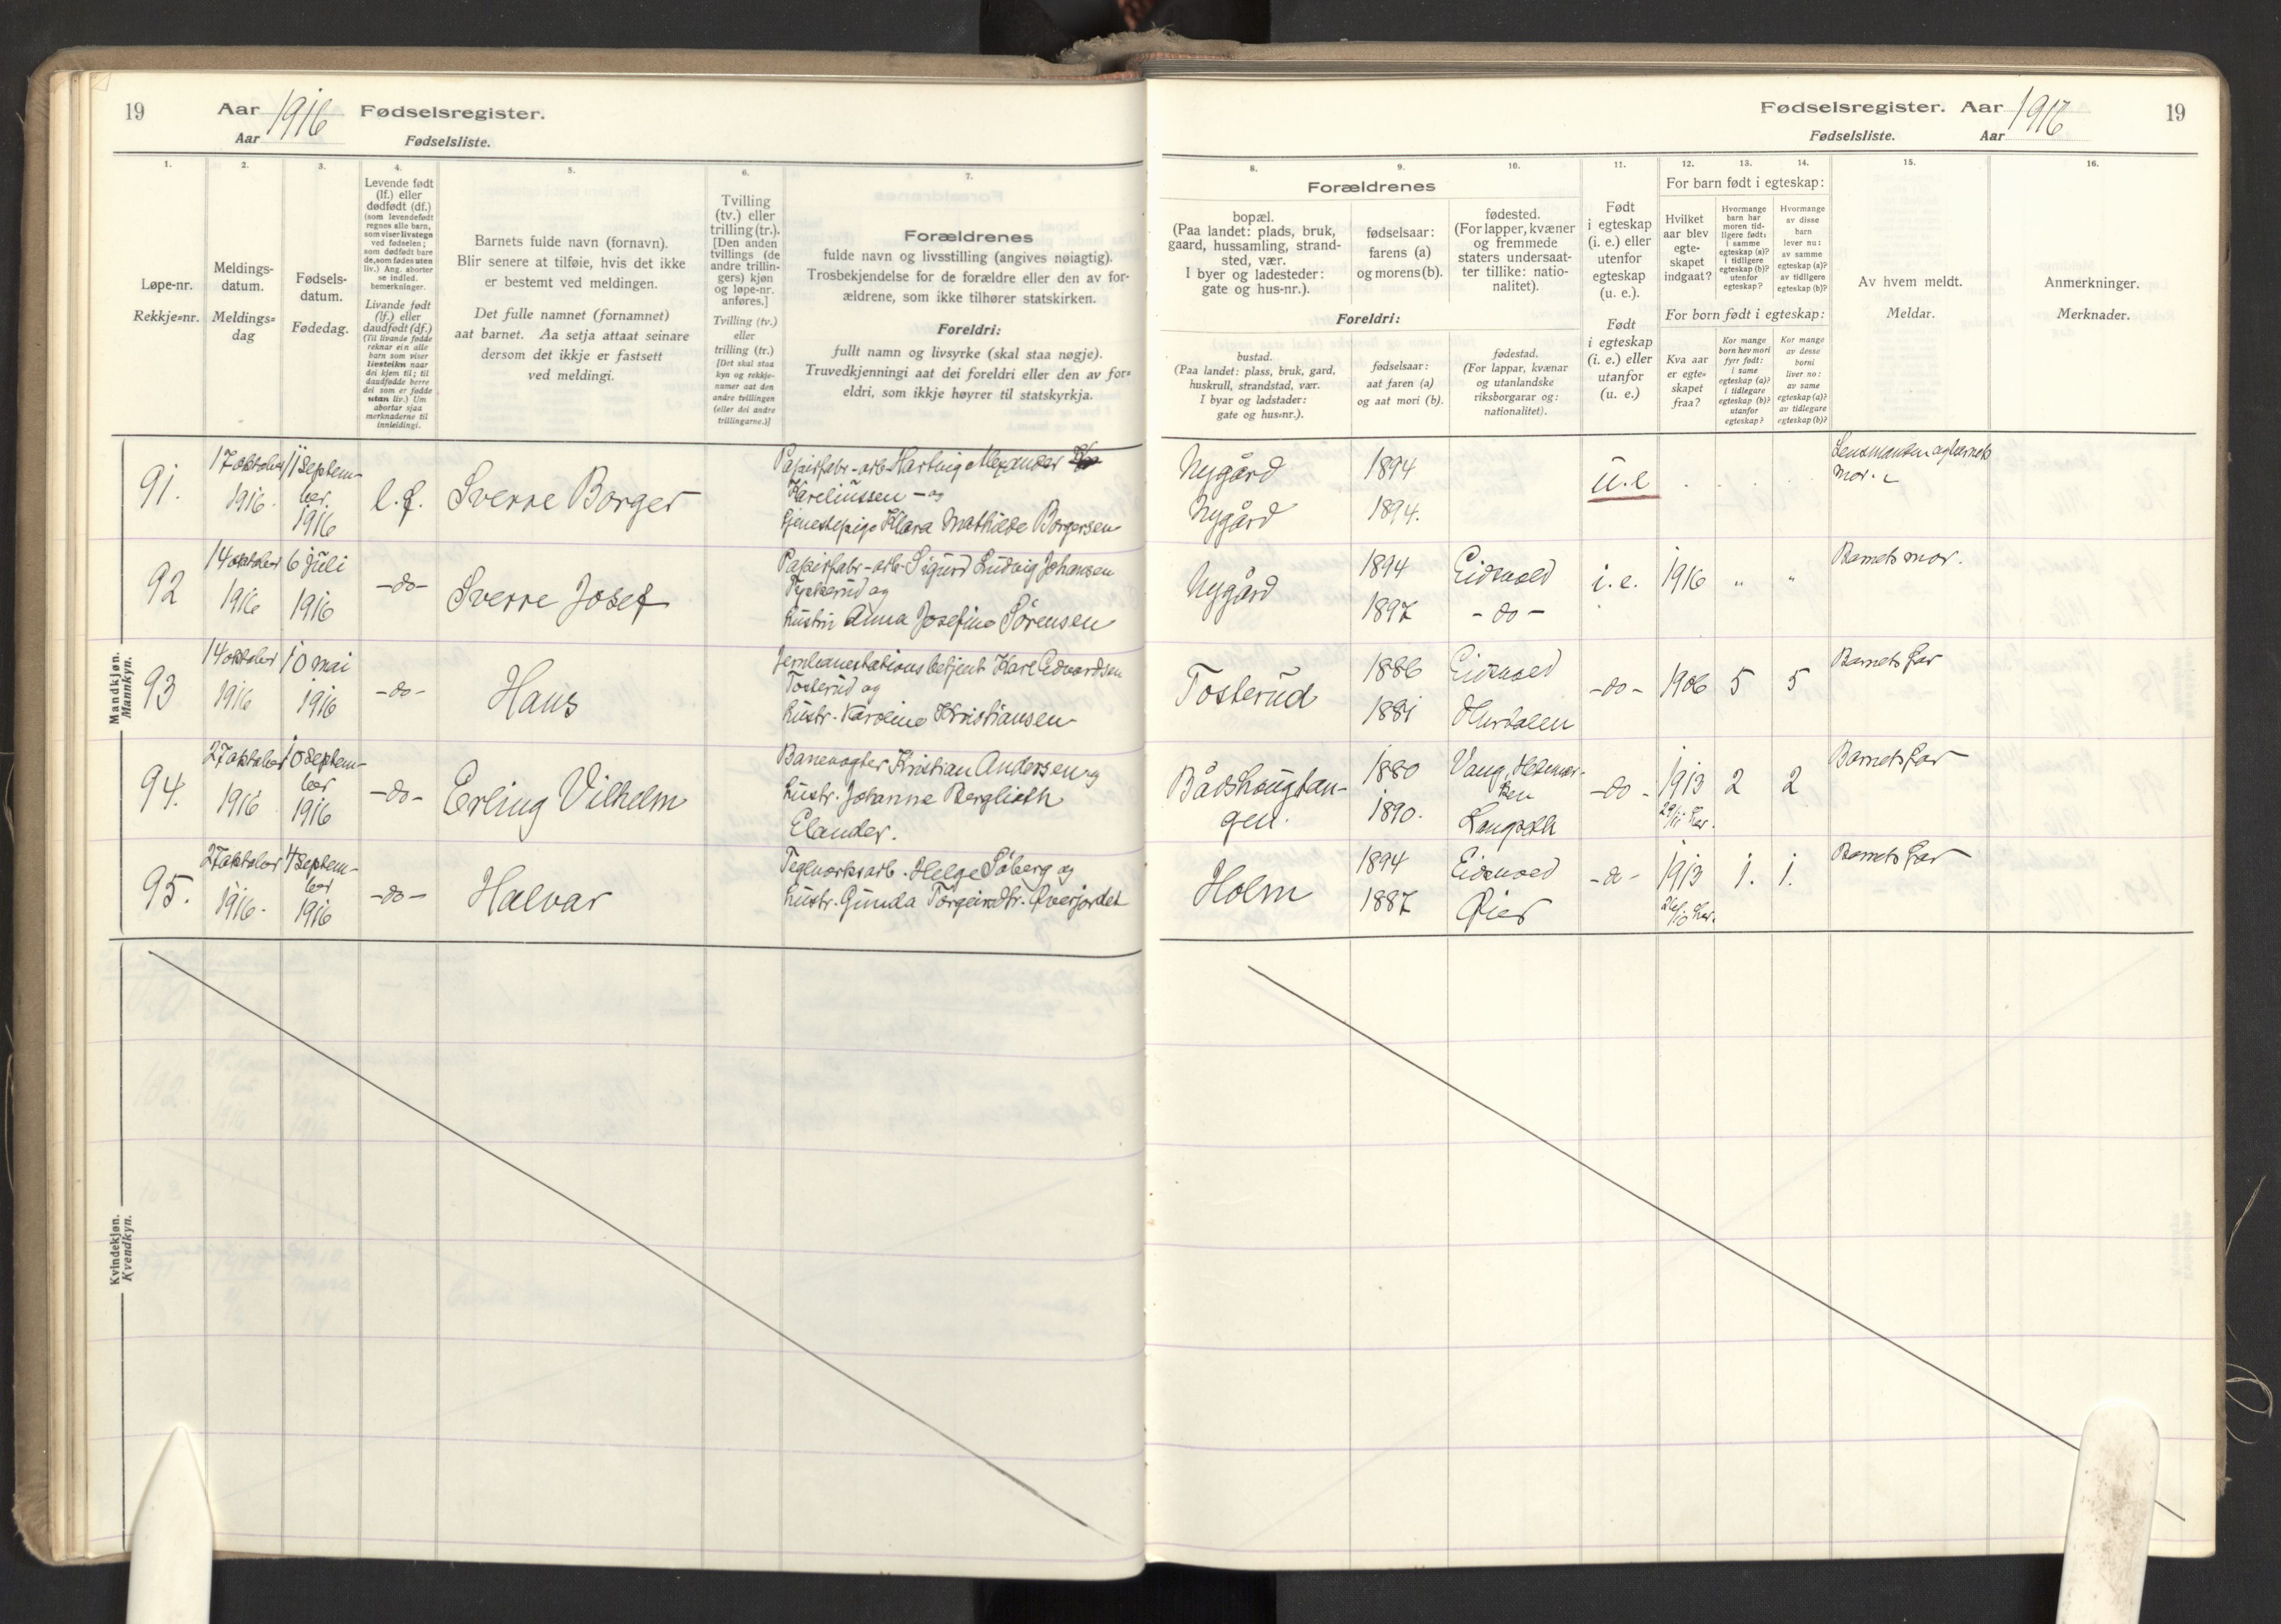 19 Aar 1916 Fødselsregister.
Aar Fødselsliste.
1. 2. 3. 4. 5. 6. 7.
Løpe-nr.
Rekkje=nr.
Meldings-
datum.
Meldings=
dag
Fødsels-
datum.
Fødedag.
Levende født
(lf.) eller
dødfødt (df.)
(som levendefødt
regnes alle barn,
som viser livstegn
ved fødselen;
som dødfødt bare
de, som fødes uten
liv.) Ang. aborter
se indled.
bemerkninger.
Livande født
(lf.) eller
daudfødt (df.)
(Til livande fødde
reknar ein alle
barn som viser
livsteikn naar
dei kjem til; til
daudfødde berre
dei som er fødde
utan liv.) Um
abortar sjaa
merknaderne til
innleidingi.
Barnets fulde navn (fornavn).
Blir senere at tilføie, hvis det ikke
er bestemt ved meldingen.
Det fulle namnet (fornamnet)
aat barnet. Aa setja attaat seinare
dersom det ikkje er fastsett
ved meldingi.
Tvilling
(tv.) eller
trilling (tr.).
[Den anden
tvillings (de
andre trillin-
gers) kjøn
og løpe-nr.
anføres.]
Tvilling (tv.)
eller
trilling (tr.)
[Det skal staa
kyn og rekkje-
numer aat den
andre tvillingen
(eller dei andre
trillingarne.)]
Forældrenes
fulde navn og livsstilling (angives nøiagtig).
Trosbekjendelse for de forældre eller den av for-
ældrene, som ikke tilhører statskirken.
Foreldri:
fullt namn og livsyrke (skal staa nøgje).
Truvedkjenningi aat dei foreldri eller den av for=
eldri, som ikkje høyrer til statskyrkja.
Mandkjøn.
Mannkyn.
91. 17 oktober 1916. 11 Septem-
ber 1916 l.f. Sverre Borger
Papirfabr-arb Hartvig Alexander
Kareliussen - og
tjenestepige Klara Mathilde Borgersen
92 14 oktober 1916 6 juli 1916 -do- Sverre Josef
Papirfabr-arb. Sigurd Ludvig Johansen
og
hustru Anna Josefine Sørensen
93 14 oktober 1916 10 mai 1916 -do- Hans
Jernbanestationsbetjent Karl Edvardsen
Tosterud og
hustr. Karoline Kristiansen
94. 27 oktober 1916 10 Septem-
ber 1916 -do- Erling Vilhelm
Banevogter Kristian Andersen og
hustr. Johanne Berglioth
Elander.
95. 27 oktober 1916. 4 Septem-
ber 1916 -do- Halvar
Teglverksarb. Helge Søberg og
hustr. Gunda Torgeirsdtr. Øverjordet
Kvindekjøn.
Kvendkyn.
Fødselsregister. Aar 1916 19
Fødselsliste. Aar
8. 9. 10. 11. 12. 13. 14. 15. 16.
Forældrenes
bopæl.
(Paa landet: plads, bruk,
gaard, hussamling, strand-
sted, vær.
I byer og ladesteder:
gate og hus-nr.).
fødselsaar:
farens (a)
og morens (b).
fødested.
(For lapper, kvæner
og fremmede
staters undersaat-
ter tillike: natio-
nalitet).
Foreldri:
bustad.
(Paa landet: plass, bruk, gard,
huskrull, strandstad, vær.
I byar og ladstader:
gate og hus=nr.).
fødselsaar:
aat faren (a)
og aat mori (b).
fødestad.
(For lappar, kvænar
og utanlandske
riksborgarar og:
nationalitet).
Født
i egteskap
(i. e.) eller
utenfor
egteskap
(u. e.).
Født
i egteskap
(i. e.) eller
utanfor
(u. e.)
For barn født i egteskap:
Hvilket
aar blev
egte-
skapet
indgaat?
Hvormange
barn har
moren tid-
ligere født:
i samme
egteskap (a)?
i tidligere
egteskap (b)?
utenfor
egteskap?
Hvormange
av disse
barn
lever nu:
av samme
egteskap (a)?
av tidligere
egteskap (b)?
For born født i egteskap:
Kva aar
er egte=
skapet
fraa?
Kor mange
born hev mori
fyrr født:
i same
egteskap (a)?
i tidlegare
egteskap (b)?
utanfor
egteskap?
Kor mange
av desse
borni
liver no:
av same
egteskap (a)?
av tidlegare
egteskap (b)?
Av hvem meldt.
Meldar.
Anmerkninger.
Merknader.
Nygård 1894 u.e Lensmanden og barnets
Nygård 1894. mor.
Nygård 1894 Eidsvold i. e. 1916 " " Barnets mor.
1897 -do-
Tosterud 1886 Eidsvold -do- 1906 5 5 Barnets far
1881 Hurdalen
Bådshaugtan-
gen. 1880 Vang, Hedmar-
ken -do- 1913 2 2 Barnets far
1890. Langseth 29/11
Holm 1894 Eidsvold -do- 1913 1. 1. Barnets far
1887 Øier 26/10